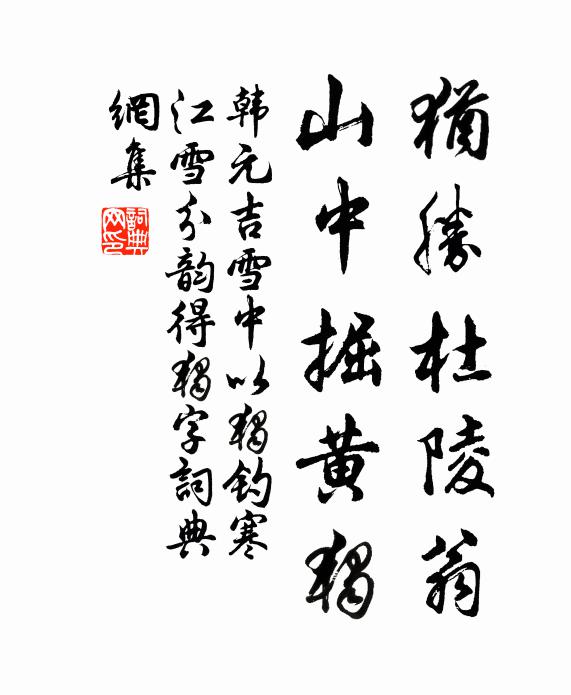 猶勝杜陵翁
山中掘黄獨
韩元吉雪中以獨釣寒
江雪分韵得獨字詞典
網集
詞典
网印